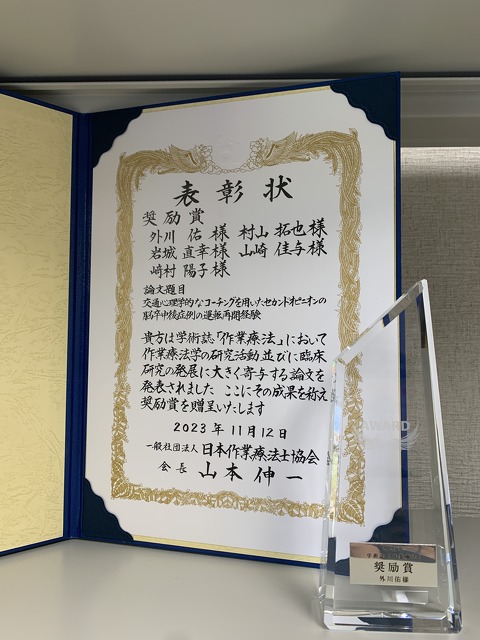 表彰状
奨励賞
外川 佑 様 村山 拓也 様
岩城 直幸 様 山﨑 佳与 様
﨑村 陽子 様
論文題目
交通心理学的なコーチングを用いたセカンドオピニオンの
脳卒中後症例の運転再開経験
貴方は学術誌「作業療法」において
作業療法学の研究活動並びに臨床
研究の発展に大きく寄与する論文を
発表されました ここにその成果を称え
奨励賞を贈呈いたします
2023年11月12日
一般社団法人 日本作業療法士協会
会長 山本伸一
AWARD
奨励賞
外川佑様